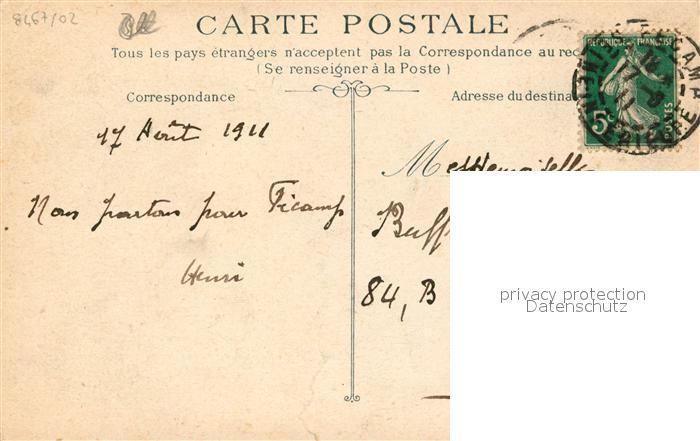 8467/02
CARTE POSTALE
Tous les pays étrangers n'acceptent pas la Correspondance au rec
(Se renseigner à la Poste)
Correspondance
Adresse du destina
REPUBLIQUE FRANÇAISE
5c
POSTES
17 Août 1911
Nous partons pour Fécamp
Henri
Mesdemoiselles
Buff
84, B
privacy protection
Datenschutz